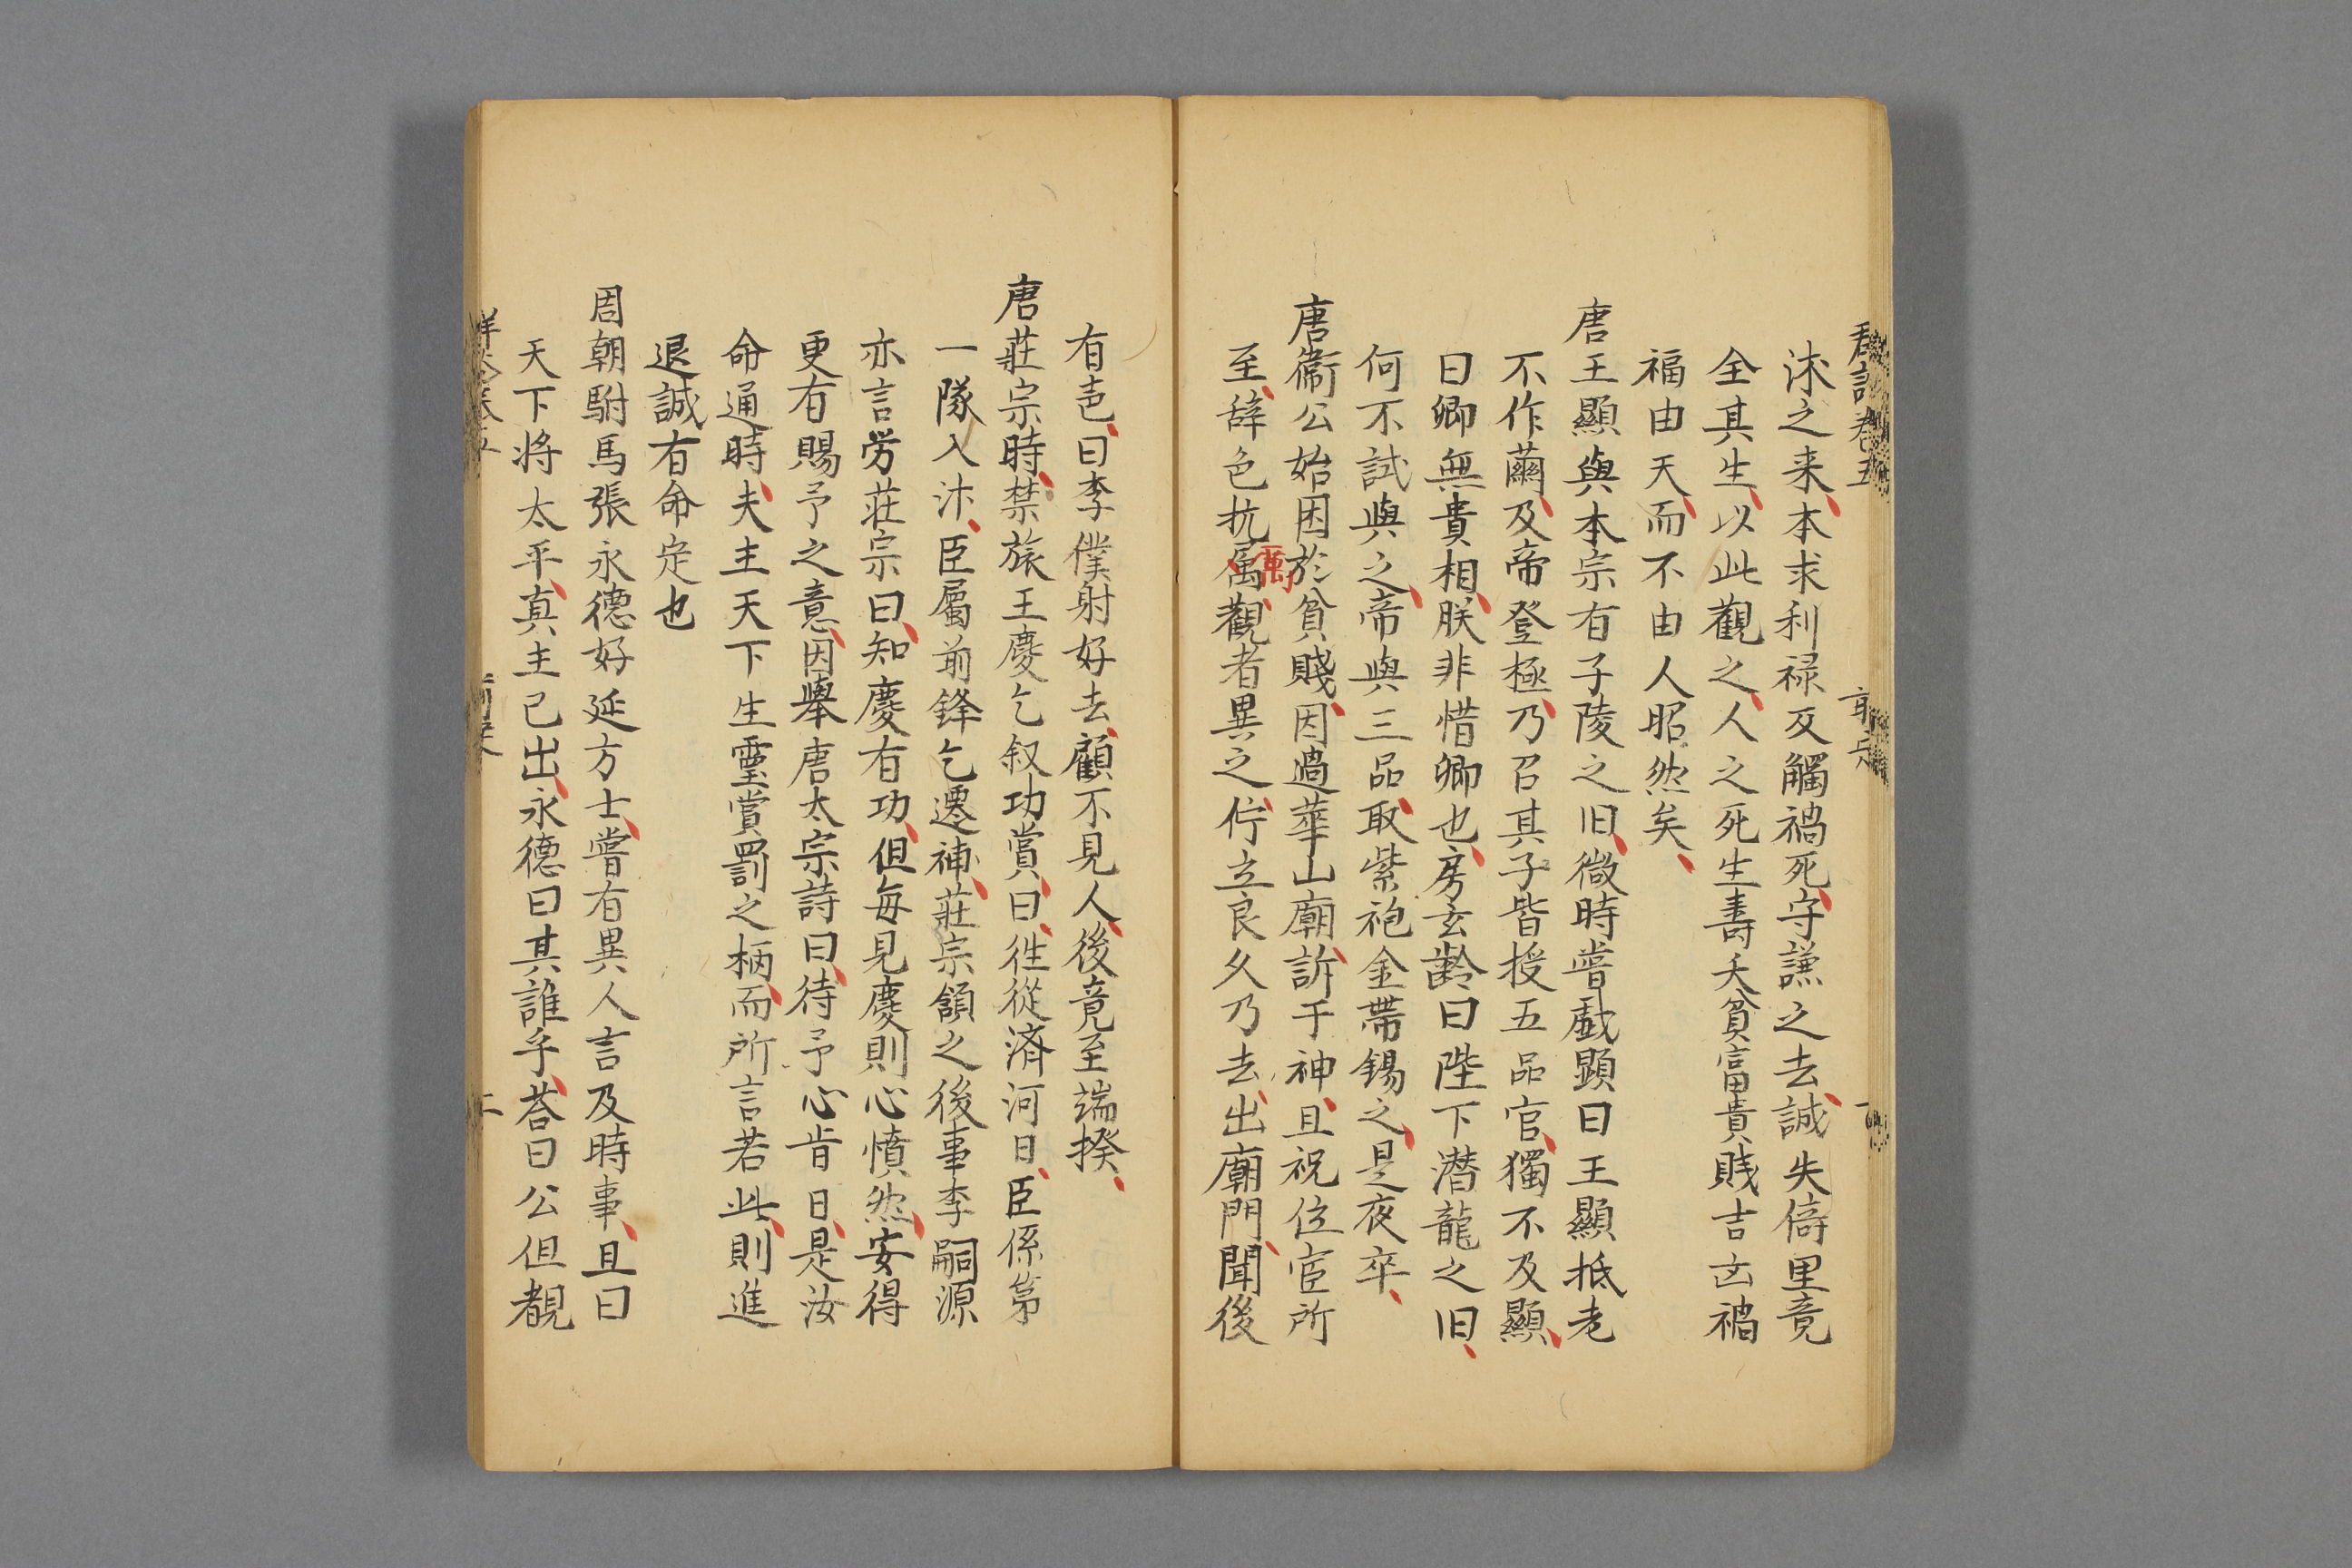 洙之来本求利禄反觸禍死守謙之去誠失倚里竟
全其生以此觀之人之死生壽夭貧富貴賎吉凶禍
福由天而不由人昭然矣
唐王顯與本宗有子陵之旧微時嘗戯顕曰王顯抵老
不作繭及帝登極乃召其子皆授五品官獨不及顯
曰卿無貴相朕非惜卿也房玄齢曰陛下潜龍之旧
何不試與之帝與三品取紫袍金帶錫之是夜卒
唐衛公始困於貧賤因過華山廟訴于神且祝位宦所
至辞色抗属觀者異之佇立良久乃去出廟門聞後
厲
有声曰李僕射好去顧不見人後竟至端揆
唐莊宗時禁旅王慶乞叙功賞曰徃從済河日臣係第
一隊入汴臣屬前鋒乞遷補莊宗頷之後事李嗣源
亦言労莊宗曰知慶有功但毎見慶則心憤然安得
更有賜予之意因舉唐太宗詩曰待予心肯日是汝
命通時夫主天下生霊賞罰之柄而所言若此則進
退誠有命定也
周朝駙馬張永德好延方士嘗有異人言及時事且曰
天下将太平真主已出永德曰其誰乎荅曰公但覩